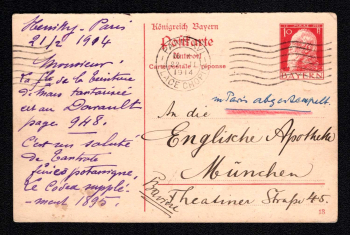 Neuilly-Paris
21/2 1914
Monsieur!
La fle de la teinture
d'
est au Dorvault
page 948.
C'est un soluté
de
ferrico potassique,
le Codex supplé-
ment 1895.
Königreich Bayern
Postkarte
Antwort
Carte postale réponse
PARIS
1914
PLACE CHOPIN
10
BAYERN
in Paris abgestempelt.
An die
Englische Apotheke
München
Bavière
Theatiner Straße 45.